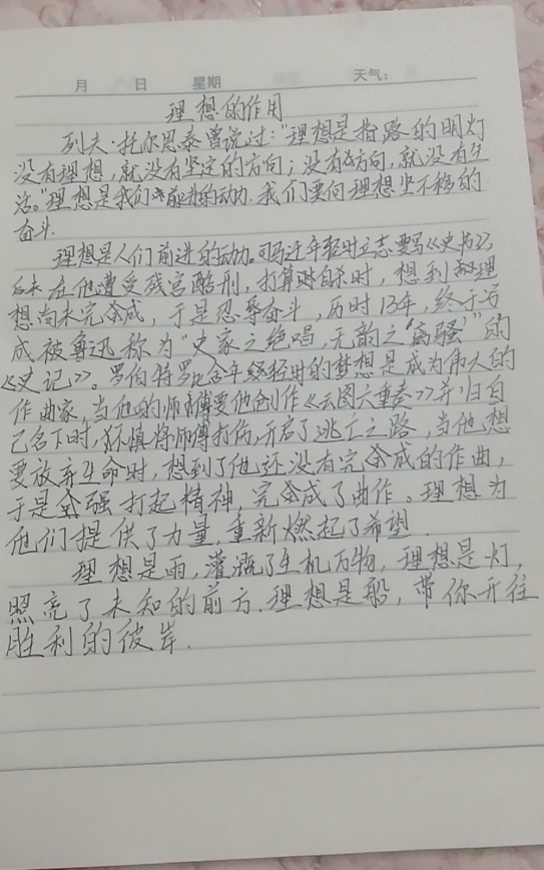 月 日 星期 天气：
理想的作用
列夫·托尔思泰曾说过："理想是指路的明灯
没有理想，就没有坚定的方向；没有方向，就没有生
活。"理想是我们前进的动力.我们要向理想坚不移的
奋斗.
理想是人们前进的动力。司马迁年轻时立志要写《史书》,
后来在他遭受残宫酷刑，打算自杀时，想到理
想尚未完成，于是忍辱奋斗，历时13年，终于写
成被鲁迅称为"史家之绝唱，无韵之'离骚'"的
《史记》。罗伯特罗比舍年轻时的梦想是成为伟大的
作曲家，当他的师傅要他创作《云图六重奏》并归自
己名下时，不慎将师傅打伤，开启了逃亡之路，当他想
要放弃生命时，想到了他还没有完成的作曲，
于是强打起精神，完成了曲作。理想为
他们提供了力量，重新燃起了希望.
理想是雨，灌溉了生机万物，理想是灯，
照亮了未知的前方.理想是船，带你开往
胜利的彼岸.